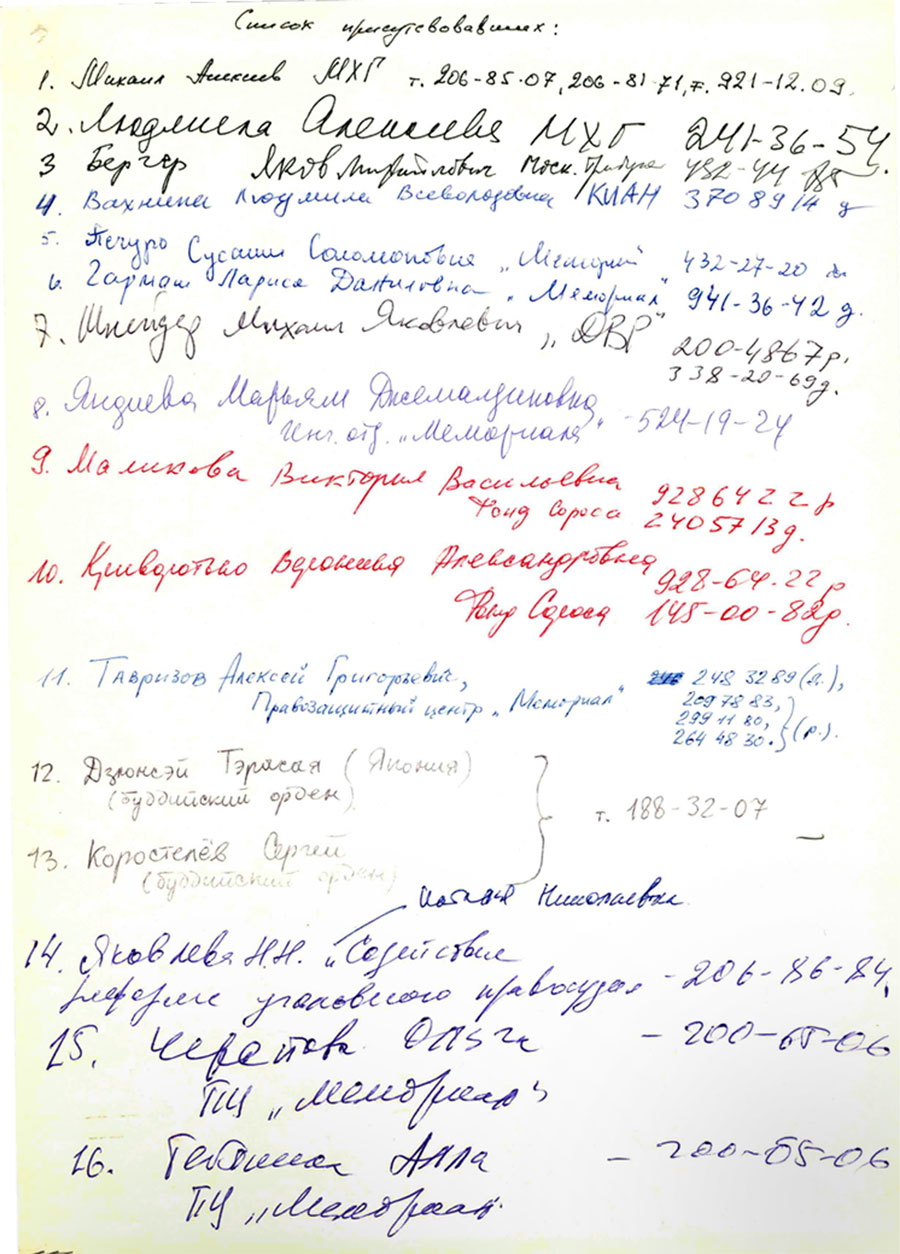 Список присутсвовавших:
1. Михаил Алексеев МХГ т. 206-85-07, 206-81-71, т. 921-12.09.
2. Людмила Алексеева МХГ 241-36-54
3 Бергер Яков Михайлович Моск. Трибуна 432-44
4. Вахнина Людмила Всеволодовна КИАН 370 89 14 д
5. Печуро Сусанна Соломоновна „Мемориал" 432-27-20
6. Лариса Даниловна „Мемориал" 941-36-42 д.
7. Шнейдер Михаил Яковлевич „ДВР" 200-4867 р.
338-20-69 д.
8. Яндиева Марьям Джемалдиновна
Инг. отд. „Мемориала" - 524-19-24
9. Маликова Виктория Васильевна 928 64 22 р
Фонд Сороса 240 57 13 д.
10. Вероника Александровна 928-64-22 р
Фонд Сороса 145-00-82 д.
11. Тавризов Алексей Григорьевич, 248 32 89 (д.),
Правозащитный центр „Мемориал" 209 78 83,
299 11 80,
264 48 30. (р.).
12. Дзюнсэй Тэрасая (Япония)
(буддийский орден)
т. 188-32-07
13. Коростелёв Сергей
(буддийский орден)
Николаевна
14. Яковлева Н.Н. „Содействие
реформе уголовного правосудия - 206-86-84.
15. Черепова Ольга - 200-65-06
ПЦ „Мемориал"
16. Алла - 200-65-06
ПЦ „Мемориал"